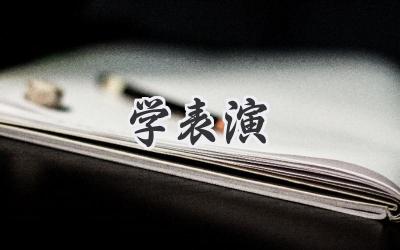 学表演